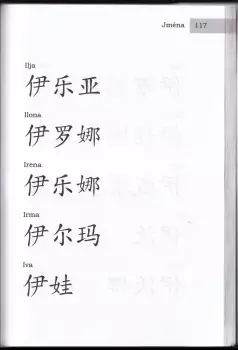 Jména 117
Ilja
伊乐亚
Ilona
伊罗娜
Irena
伊乐娜
Irma
伊尔玛
Iva
伊娃